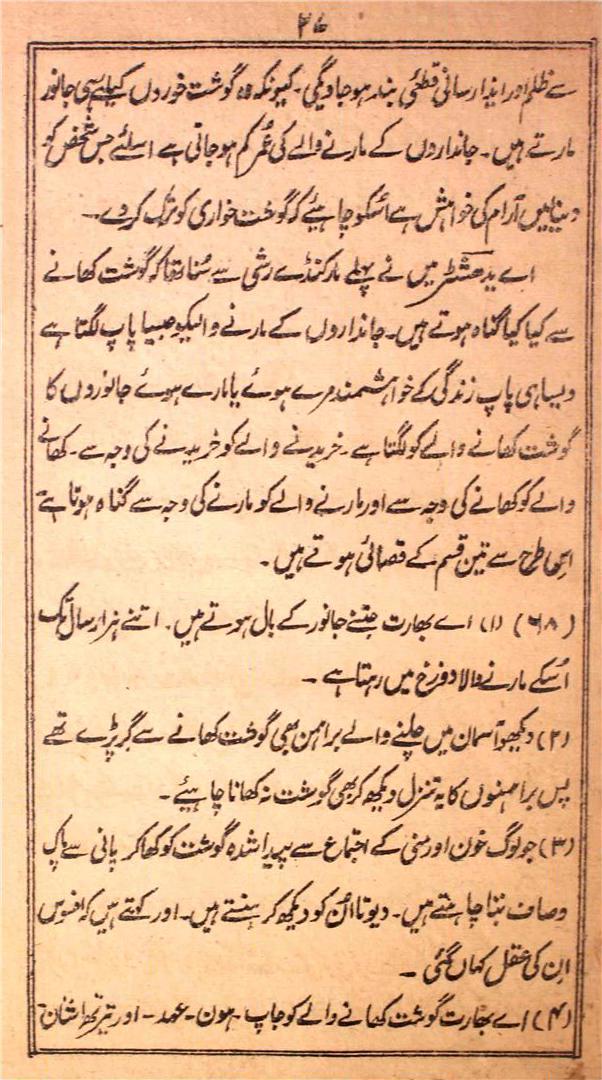 ۳۷
سے ظلم اور ایذا رسانی قطعی بند ہو جاویگی۔ کیونکہ وہ گوشت خوروں کیلئے ہی جانور
مارتے ہیں۔ جانداروں کے مارنے والے کی عمر کم ہو جاتی ہے اسلئے جس شخص کو
دنیا میں آرام کی خواہش ہے اُسکو چاہیئے کہ گوشت خواری کو ترک کر دے۔
اے یدھشٹر میں نے پہلے مارکنڈے رشی سے سُنا تھا کہ گوشت کھانے
سے کیا کیا گناہ ہوتے ہیں۔ جانداروں کے مارنے والیکو جیسا پاپ لگتا ہے
ویسا ہی پاپ زندگی کے خواہشمند مرے ہوئے یا مارے ہوئے جانوروں کا
گوشت کھانے والے کو لگتا ہے۔ خریدنے والے کو خریدنے کی وجہ سے۔ کھانے
والے کو کھانے کی وجہ سے اور مارنے والے کو مارنے کی وجہ سے گناہ ہوتا ہے
اسی طرح سے تین قسم کے قصائی ہوتے ہیں۔
(۶۸) (۱) اے بھارت جتنے جانور کے بال ہوتے ہیں۔ اتنے ہزار سال تک
اُسکے مارنے والا دوزخ میں رہتا ہے۔
(۲) دیکھو آسمان میں چلنے والے براہمن بھی گوشت کھانے سے گر پڑے تھے
پس براہمنوں کا یہ تنزل دیکھ کر بھی گوشت نہ کھانا چاہیئے۔
(۳) جو لوگ خون اور منی کے اجتماع سے پیدا شدہ گوشت کو کھا کر پانی سے پاک
و صاف بننا چاہتے ہیں۔ دیوتا اُن کو دیکھ کر ہنستے ہیں۔ اور کہتے ہیں کہ افسوس
اِن کی عقل کہاں گئی۔
(۴) اے بھارت گوشت کھانے والے کو جاپ۔ ہون۔ عہد۔ اور تیرتھ اشنان